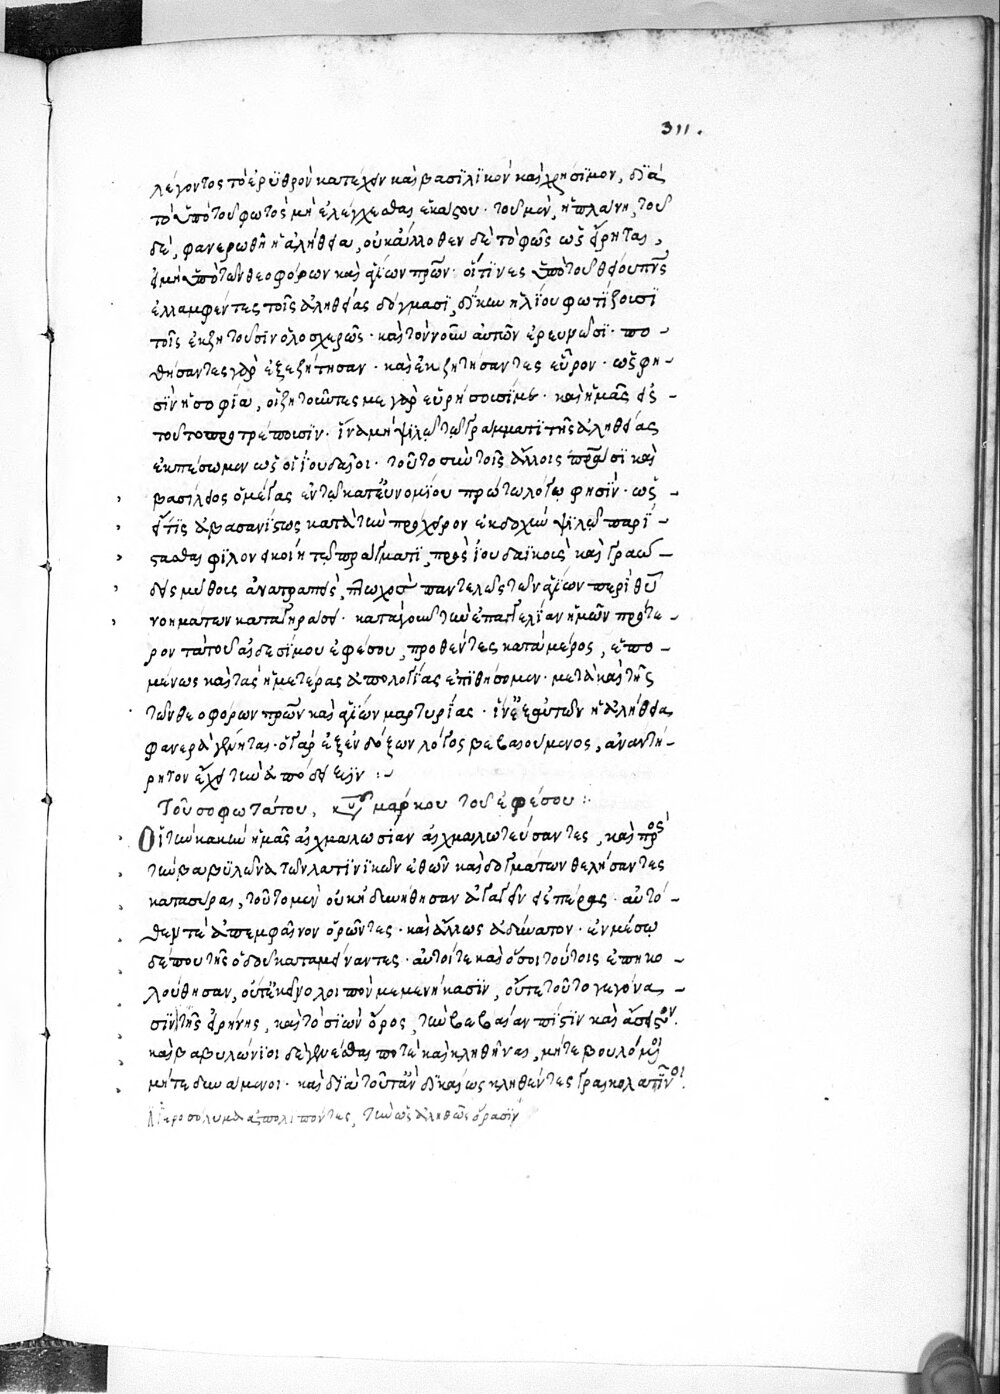 311.
λέγοντος τὸ ἐρυθρὸν κατέχειν καὶ βασιλικὸν καὶ χρήσιμον, διὰ
τὸ ὑπὸ τοῦ φωτὸς μὴ ἐλέγχεσθαι ἑκάστου· τοῦ μὲν, ἡ πλάνη, τοῦ
δὲ, φανερωθῇ ἡ ἀλήθεια, οὐκ ἄλλοθεν δὲ τὸ φῶς ὡς εἴρηται,
εἰ μὴ ὑπὸ τῶν θεοφόρων καὶ ἁγίων πρῶν· οἵτινες ὑπὸ τοῦ θείου πνς
ἐλλαμφέντες τοῖς ἀληθείας δόγμασι, δίκην ἡλίου φωτίζουσι
τοῖς ἐκζητοῦσιν ὁλοσχερῶς· καὶ τὸν νοῦν αὐτῶν ἐρευνῶσι· πο-
θήσαντες γὰρ ἐξεζήτησαν· καὶ ἐκζητήσαντες εὗρον· ὥς φη-
σὶν ἡ σοφία, οἱ ζητοῦντες με γὰρ εὑρήσουσί με· καὶ ἡμᾶς εἰς
τοῦτο προτρέπουσιν· ἵνα μὴ ψιλῷ τῷ γράμματι τῆς ἀληθείας
ἐκπέσωμεν ὡς οἱ ἰουδαῖοι· τοῦτο σὺν τοῖς ἄλλοις πρᾶσι καὶ
βασίλειος ὁ μέγας ἐν τῷ κατ' εὐνομίου πρώτῳ λόγῳ φησὶν· ὡς
εἴτις ἀβασανίστως κατὰ τὴν πρόχειρον ἐκδοχὴν ψιλῷ παρί-
στασθαι φίλονεικοίη τῷ γράμματι, πρὸς ἰουδαϊκοὺς καὶ γραώ-
δεις μύθους ἀνατραπεὶς, πτωχὸς παντελῶς τῶν ἁγίων περὶ θῦ
νοημάτων καταγηράσει· κατὰ γοῦν τὴν ἐπαγγελίαν ἡμῶν πρότε-
ρον τὰ τοῦ αἰδεσίμου ἐφέσου, προθέντες κατὰ μέρος, ἑπο-
μένως καὶ τὰς ἡμετέρας ἀπολογίας ἐπιθήσομεν· μετὰ καὶ τῆς
τῶν θεοφόρων πρῶν καὶ ἁγίων μαρτυρίας· ἵν' ἐξ αὐτῶν ἡ ἀλήθεια
φανερὰ γένηται· ὁ γὰρ ἐξ ἐνδόξων λόγος βεβαιούμενος, ἀναντίρ-
ρητον ἔχει τὴν ἀπόδειξιν :~
Τοῦ σοφωτάτου, κυροῦ μάρκου τοῦ ἐφέσου :
Οἱ τὴν κακὴν ἡμᾶς αἰχμαλωσίαν αἰχμαλωτεύσαντες, καὶ πρὸς
τὴν βαβυλῶνα τῶν λατινικῶν ἐθῶν καὶ δογμάτων θελήσαντες
κατασύραι, τοῦτο μὲν οὐκ ἠδυνήθησαν ἀγαγεῖν εἰς πέρας· αὐτό-
θεν τε ἀπεμφαῖνον ὁρῶντες· καὶ ἄλλως ἀδύνατον· ἐν μέσῳ
δέ που τῆς ὁδοῦ καταμείναντες· αὐτοί τε καὶ ὅσοι τούτοις ἐπηκο-
λούθησαν, οὔτ' ἐκεῖνοι οἵ που μεμενήκασιν, οὔτε τοῦτο γεγόνα-
σιν τῆς εἰρήνης, καὶ τὸ σιὼν ὄρος, τὴν βεβαίαν πίστιν καὶ ἄσειστον.
καὶ βαβυλώνιοι δὲ γενέσθαι ποτὲ καὶ κληθῆναι, μήτε βουλόμενοι
μήτε δυνάμενοι· καὶ διὰ τοῦτ' ἂν δικαίως κληθέντες γραικολατῖνοι.
ἱεροσόλυμα ἀπολιπόντες, τὴν ὡς ἀληθῶς ὅρασιν